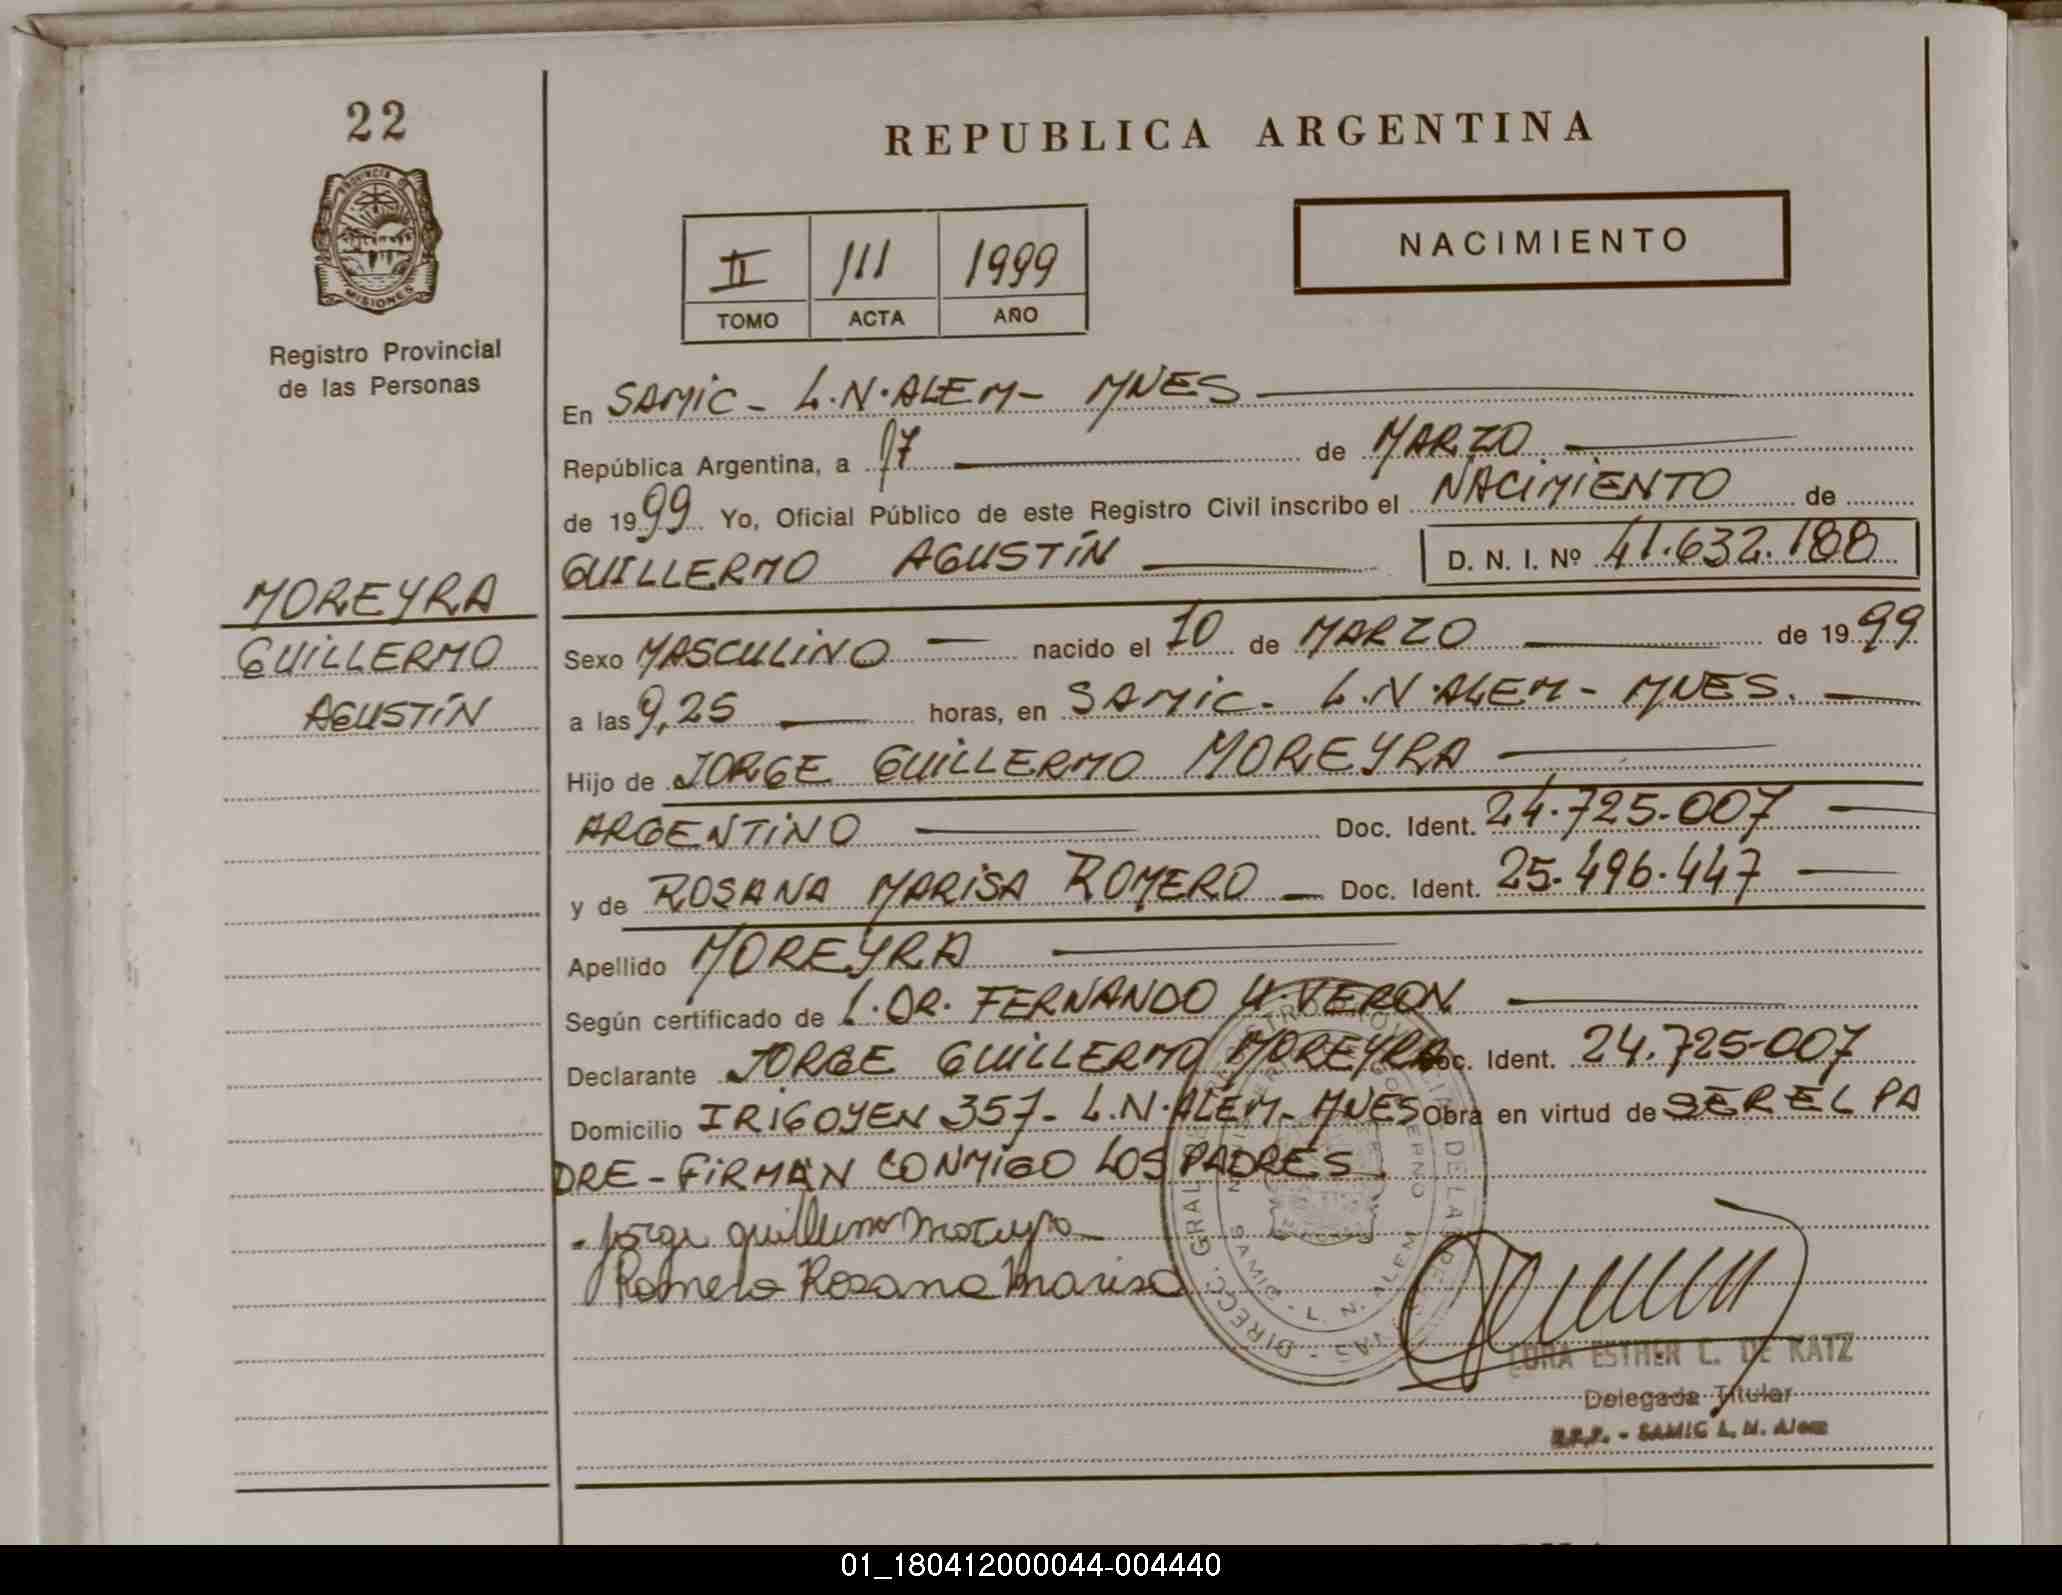 22
PROVINCIA DE
MISIONES
Registro Provincial
de las Personas
REPUBLICA ARGENTINA
II 111 1999
TOMO ACTA AÑO
NACIMIENTO
En SAMIC - L.N. ALEM - MNES
República Argentina, a 17 de MARZO
de 1999 Yo, Oficial Público de este Registro Civil inscribo el NACIMIENTO de
GUILLERMO AGUSTÍN D. N. I. Nº 41.632.188
MOREYRA
GUILLERMO
AGUSTÍN
Sexo MASCULINO nacido el 10 de MARZO de 1999
a las 9,25 horas, en SAMIC - L.N. ALEM - MNES.
Hijo de JORGE GUILLERMO MOREYRA
ARGENTINO Doc. Ident. 24.725.007
y de ROSANA MARISA ROMERO Doc. Ident. 25.496.447
Apellido MOREYRA
Según certificado de DR. FERNANDO VERON
Declarante JORGE GUILLERMO MOREYRA Doc. Ident. 24.725.007
Domicilio IRIGOYEN 357 - L.N. ALEM - MNES Obra en virtud de SER EL PA
DRE - FIRMAN CONMIGO LOS PADRES.
Jorge Guillermo Moreyra
Romero Rosana Marisa
ESTHER C. DE KATZ
Delegada Titular
R.P.P. - SAMIC L. N. Alem
DIRECC. GRAL.
SAMIC - L. N. ALEM
01_180412000044-004440